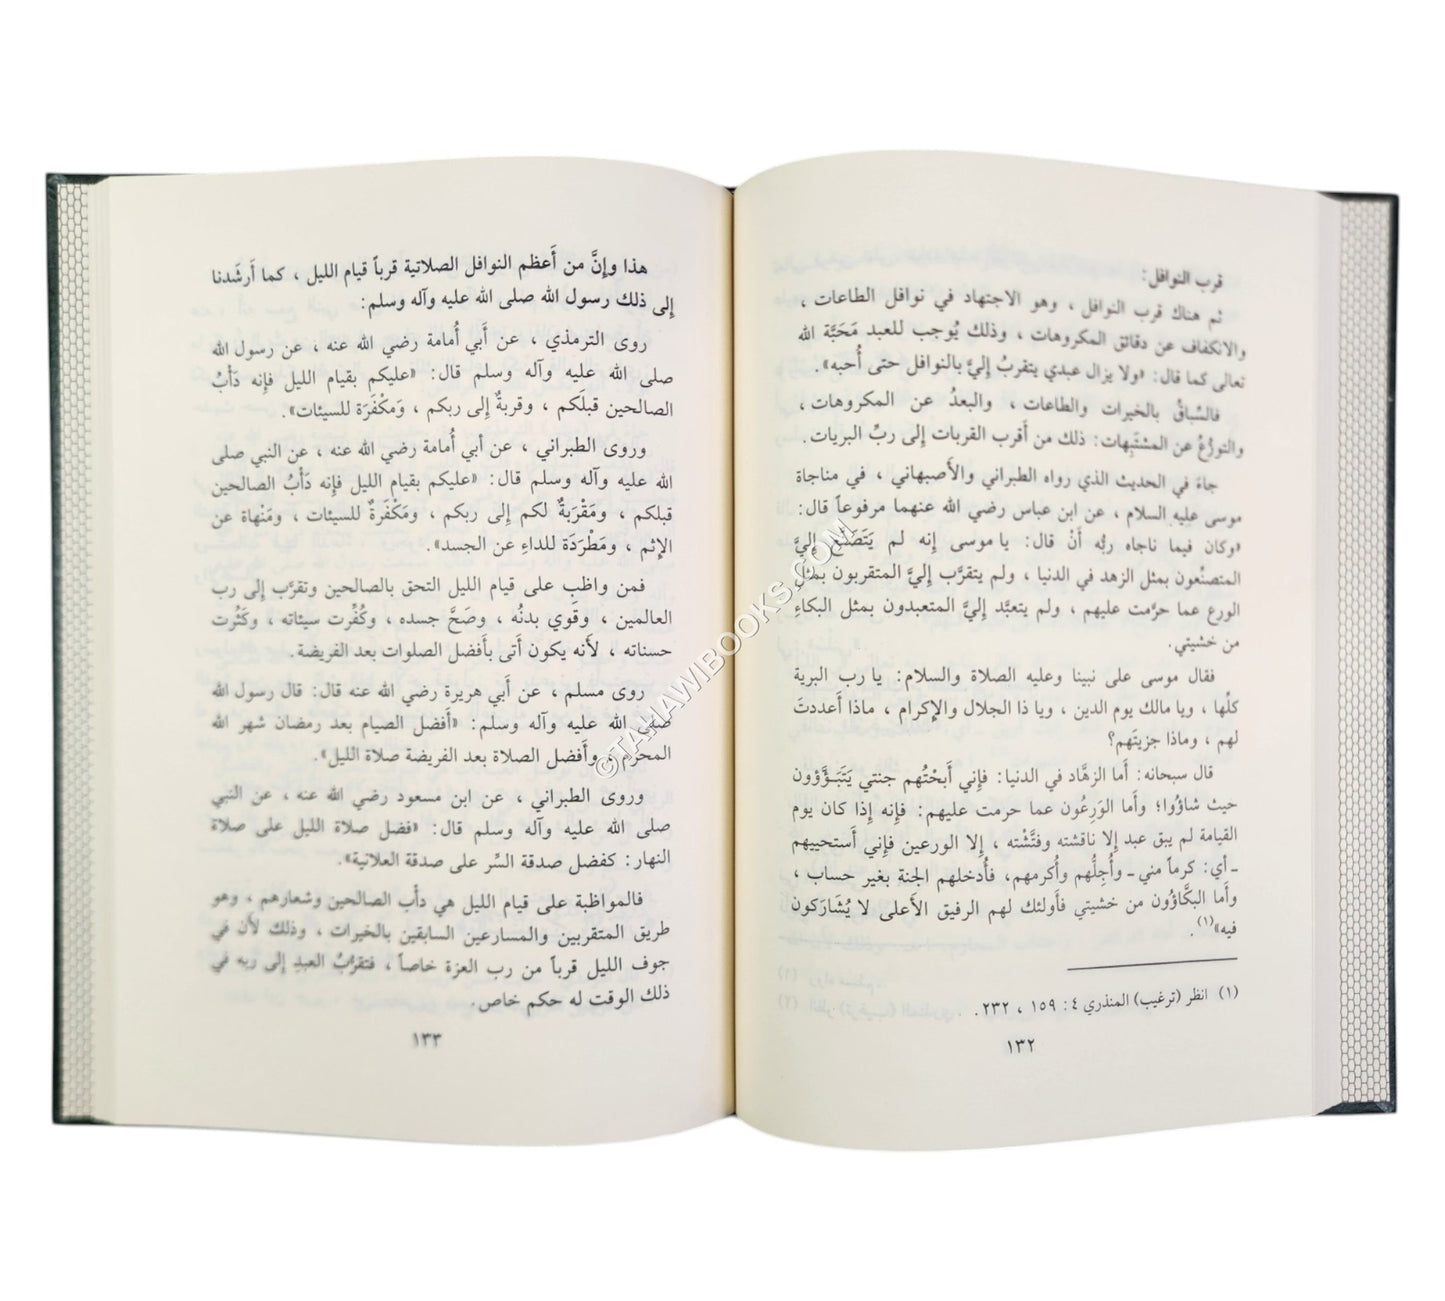 قرب النوافل:
ثم هناك قرب النوافل ، وهو الاجتهاد في نوافل الطاعات ،
والانكفاف عن دقائق المكروهات ، وذلك يُوجب للعبد مَحَبَّة الله
تعالى كما قال: «ولا يزال عبدي يتقربُ إليَّ بالنوافل حتى أُحبه».
فالسِّباقُ بالخيرات والطاعات ، والبعدُ عن المكروهات ،
والتورُّعُ عن المشتبِهات: ذلك من أَقرب القربات إلى ربِّ البريات.
جاءَ في الحديث الذي رواه الطبراني والأَصبهاني ، في مناجاة
موسى عليه السلام ، عن ابن عباس رضي الله عنهما مرفوعاً قال:
«وكان فيما ناجاه ربُّه أَنْ قال: يا موسى إنه لم يَتَصَنَّع إليَّ
المتصنِّعون بمثل الزهد في الدنيا ، ولم يتقرَّب إليَّ المتقربون بمثل
الورع عما حرَّمت عليهم ، ولم يتعبَّد إليَّ المتعبدون بمثل البكاءِ
من خشيتي.
فقال موسى على نبينا وعليه الصلاة والسلام: يا رب البرية
كلِّها ، ويا مالك يوم الدين ، ويا ذا الجلال والإكرام ، ماذا أَعددتَ
لهم ، وماذا جزيتَهم؟
قال سبحانه: أَما الزهَّاد في الدنيا: فإني أَبحْتُهم جنتي يَتَبَوَّؤون
حيث شاؤُوا؛ وأَما الوَرِعُون عما حرمت عليهم: فإنه إذا كان يوم
القيامة لم يبق عبد إلا ناقشته وفتَّشْته ، إلا الورعين فإني أَستحييهم
ـ أي: كرماً مني ـ وأُجِلُّهم وأُكرمهم، فأُدخلهم الجنة بغير حساب ،
وأَما البكَّاؤُون من خشيتي فأَولئك لهم الرفيق الأَعلى لا يُشَارَكون
فيه»(١).
(١) انظر (ترغيب) المنذري ٤: ١٥٩ ، ٢٣٢.
١٣٢
هذا وإِنَّ من أَعظم النوافل الصلاتية قرباً قيام الليل ، كما أَرشَدنا
إِلى ذلك رسول الله صلى الله عليه وآله وسلم:
روى الترمذي ، عن أَبي أُمامة رضي الله عنه ، عن رسول الله
صلى الله عليه وآله وسلم قال: «عليكم بقيام الليل فإنه دَأْبُ
الصالحين قبلَكم ، وقربةٌ إِلى ربكم ، وَمَكْفَرَة للسيئات».
وروى الطبراني ، عن أبي أُمامة رضي الله عنه ، عن النبي صلى
الله عليه وآله وسلم قال: «عليكم بقيام الليل فإنه دَأْبُ الصالحين
قبلكم ، ومَقْرَبَةٌ لكم إلى ربكم ، ومَكْفَرةٌ للسيئات ، ومَنْهاة عن
الإِثم ، ومَطْرَدَة للداءِ عن الجسد».
فمن واظب على قيام الليل التحق بالصالحين وتقرَّب إلى رب
العالمين ، وقَوي بدنُه ، وصَحَّ جسده ، وكُفِّرت سيئاته ، وكَثُرت
حسناته ، لأَنه يكون أَتى بأَفضل الصلوات بعد الفريضة.
روى مسلم ، عن أَبي هريرة رضي الله عنه قال: قال رسول الله
صلى الله عليه وآله وسلم: «أَفضل الصيام بعد رمضان شهر الله
المحرَّم ، وأَفضل الصلاة بعد الفريضة صلاة الليل».
وروى الطبراني ، عن ابن مسعود رضي الله عنه ، عن النبي
صلى الله عليه وآله وسلم قال: «فضل صلاة الليل على صلاة
النهار: كفضل صدقة السِّر على صدقة العلانية».
فالمواظبة على قيام الليل هي دأب الصالحين وشعارهم ، وهو
طريق المتقربين والمسارعين السابقين بالخيرات ، وذلك لأن في
جوف الليل قرباً من رب العزة خاصاً ، فتقرُّبُ العبدِ إلى ربه في
ذلك الوقت له حكم خاص.
١٣٣
©TAHAWIBOOKS.COM